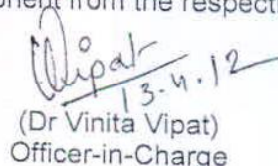 onent from the respecti
Vipat
13.4.12
(Dr Vinita Vipat)
Officer-in-Charge